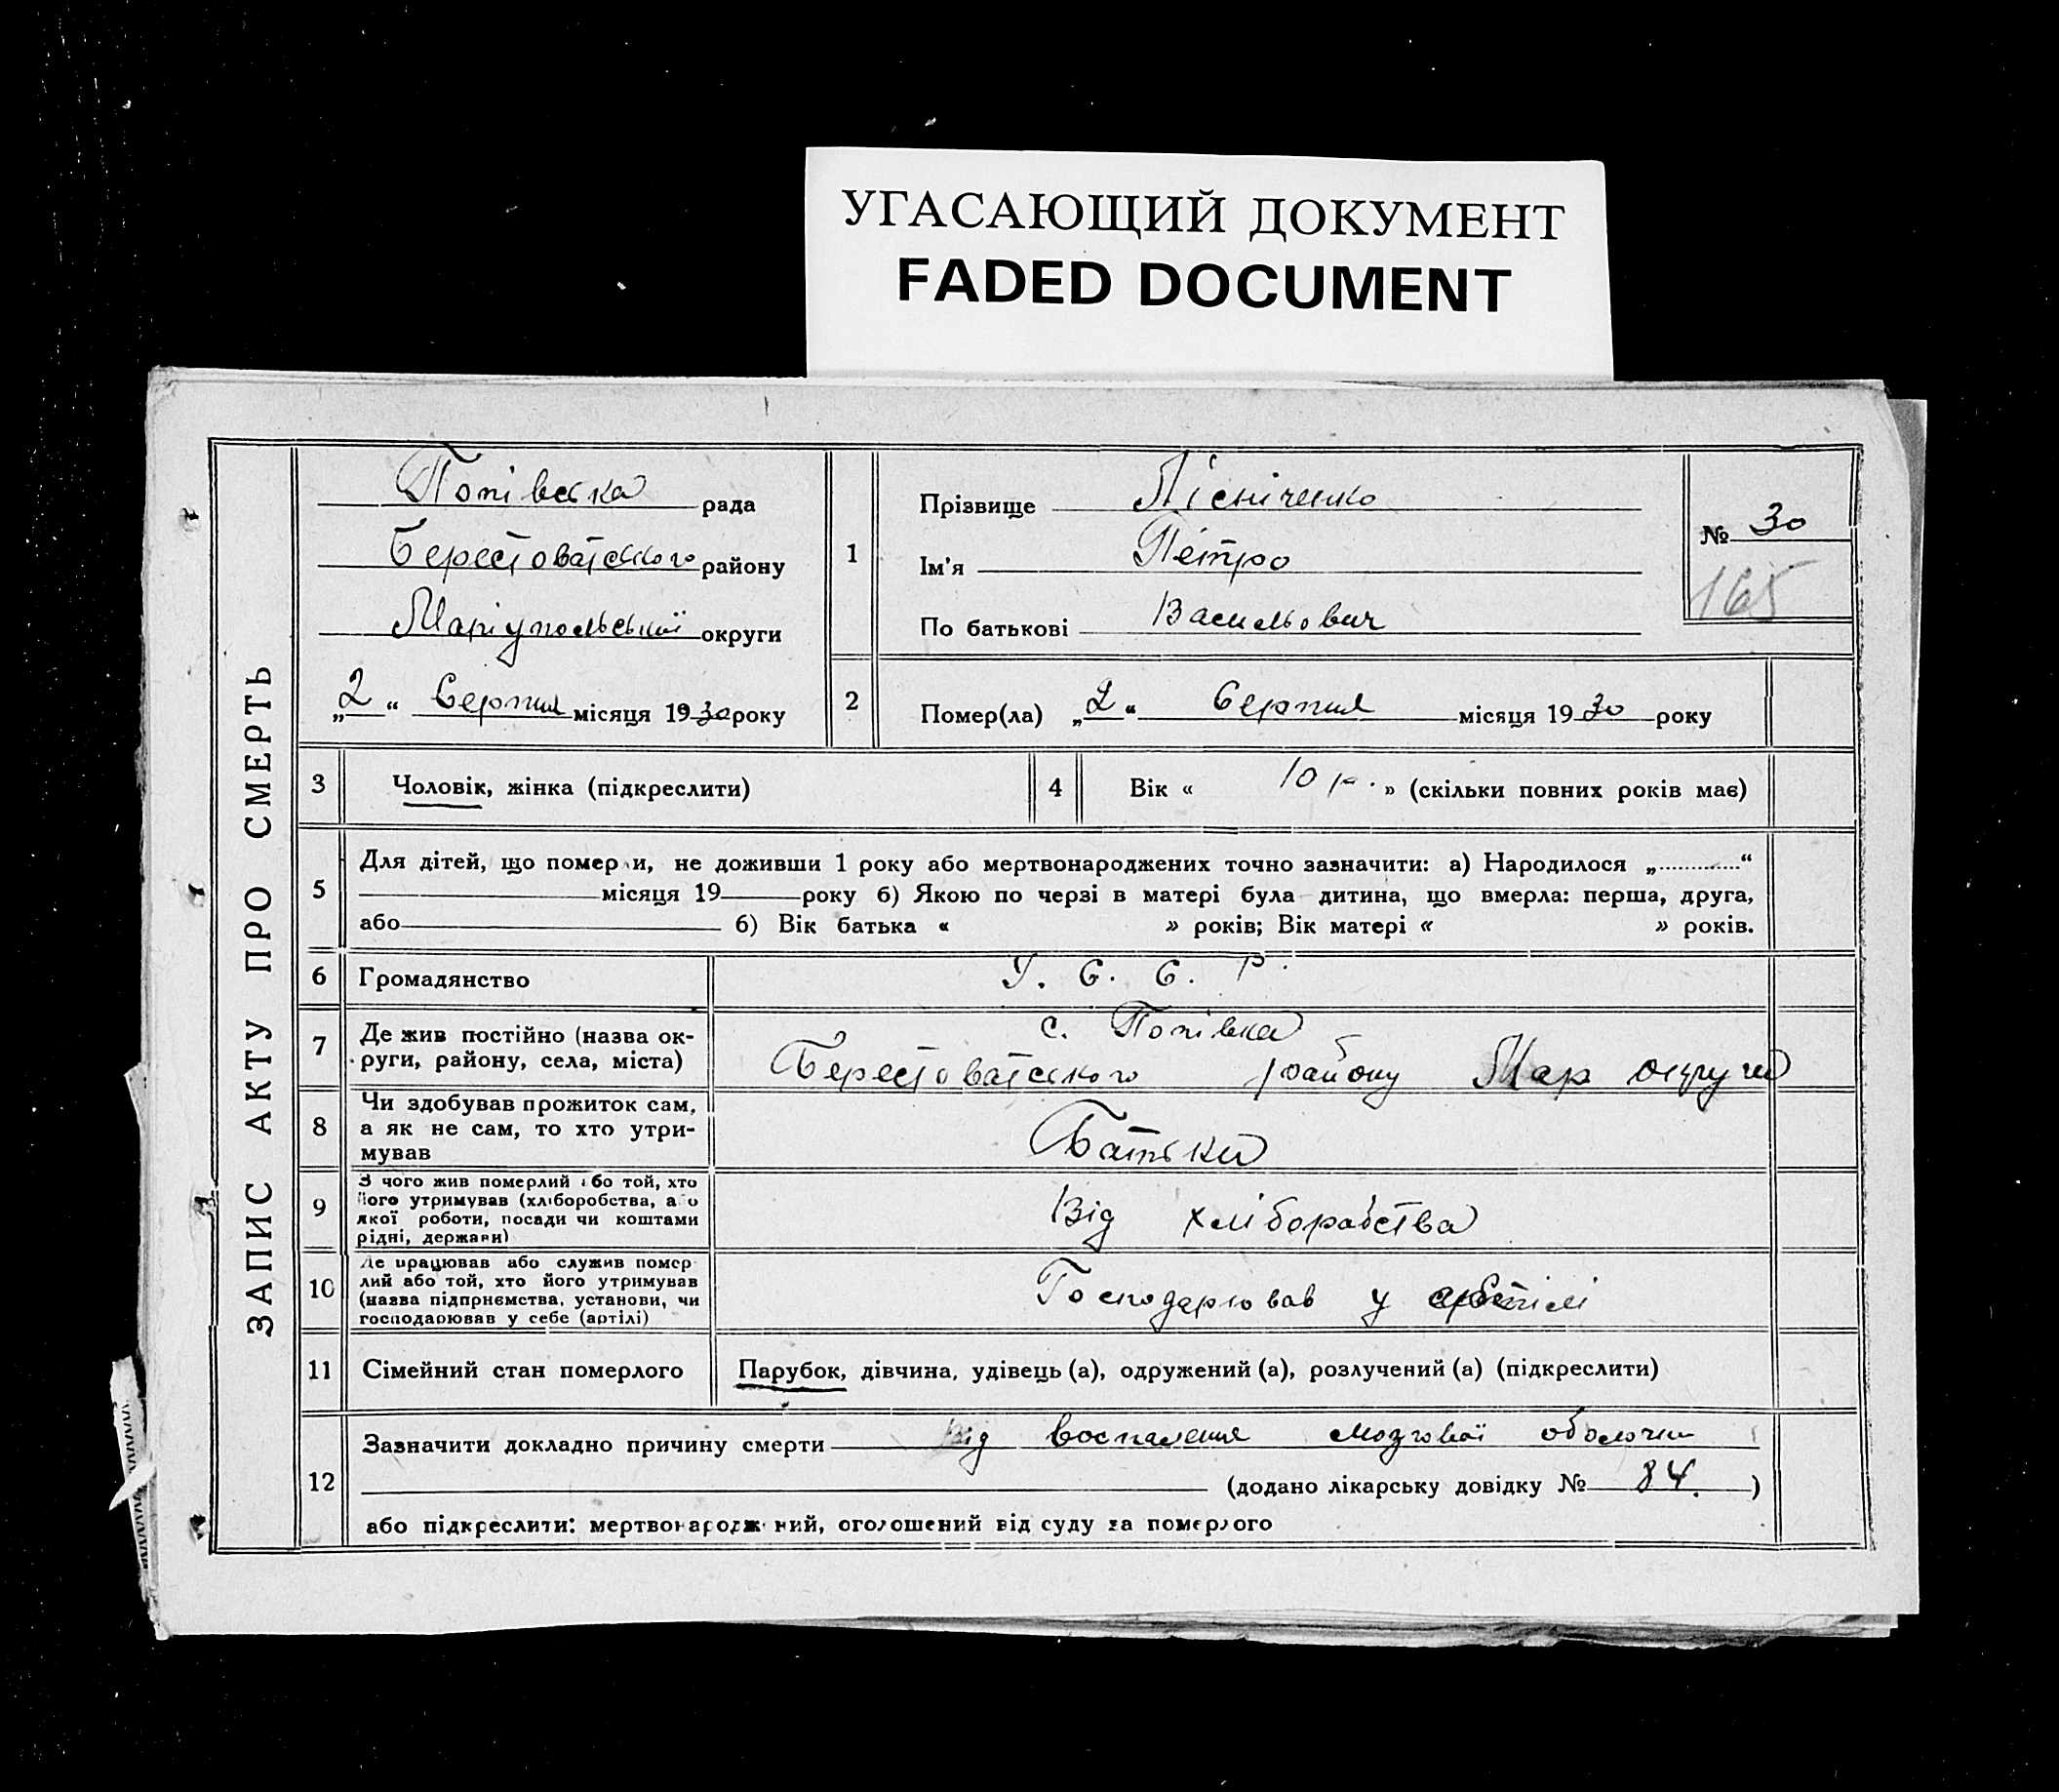 УГАСАЮЩИЙ ДОКУМЕНТ
FADED DOCUMENT
ЗАПИС АКТУ ПРО СМЕРТЬ
Попівська рада
Берестоватського району
Маріупольської округи
„2“ Серпня місяця 1930 року
1
Прізвище Пісніченко
Ім'я Петро
По батькові Васильович
№ 30
165
2
Помер(ла) „2“ Серпня місяця 1930 року
3 Чоловік, жінка (підкреслити)
4 Вік « 10 р. » (скільки повних років має)
5
Для дітей, що померли, не доживши 1 року або мертвонароджених точно зазначити: а) Народилося „.............“
місяця 19 року б) Якою по черзі в матері була дитина, що вмерла: перша, друга,
або б) Вік батька « » років; Вік матері « » років.
6 Громадянство У. С. С. Р.
7
Де жив постійно (назва ок-
руги, району, села, міста)
с. Попівка
Берестоватського району Мар округи
8
Чи здобував прожиток сам,
а як не сам, то хто утри-
мував
Батьки
9
З чого жив померлий або той, хто
його утримував (хліборобства, або
якої роботи, посади чи коштами
рідні, держави)
Від хліборобства
10
Де працював або служив помер
лий або той, хто його утримував
(назва підприємства, установи, чи
господарював у себе (артілі)
Господарював у артілі
11 Сімейний стан померлого
Парубок, дівчина, удівець (а), одружений (а), розлучений (а) (підкреслити)
12
Зазначити докладно причину смерти від воспалення мозгової оболочки
(додано лікарську довідку № 84. )
або підкреслити: мертвонароджений, оголошений від суду за померлого